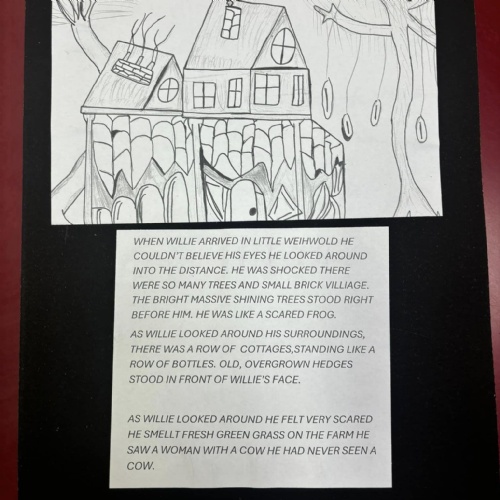 WHEN WILLIE ARRIVED IN LITTLE WEIHWOLD HE
COULDN'T BELIEVE HIS EYES HE LOOKED AROUND
INTO THE DISTANCE. HE WAS SHOCKED THERE
WERE SO MANY TREES AND SMALL BRICK VILLIAGE.
THE BRIGHT MASSIVE SHINING TREES STOOD RIGHT
BEFORE HIM. HE WAS LIKE A SCARED FROG.
AS WILLIE LOOKED AROUND HIS SURROUNDINGS,
THERE WAS A ROW OF COTTAGES,STANDING LIKE A
ROW OF BOTTLES. OLD, OVERGROWN HEDGES
STOOD IN FRONT OF WILLIE'S FACE.
AS WILLIE LOOKED AROUND HE FELT VERY SCARED
HE SMELLT FRESH GREEN GRASS ON THE FARM HE
SAW A WOMAN WITH A COW HE HAD NEVER SEEN A
COW.